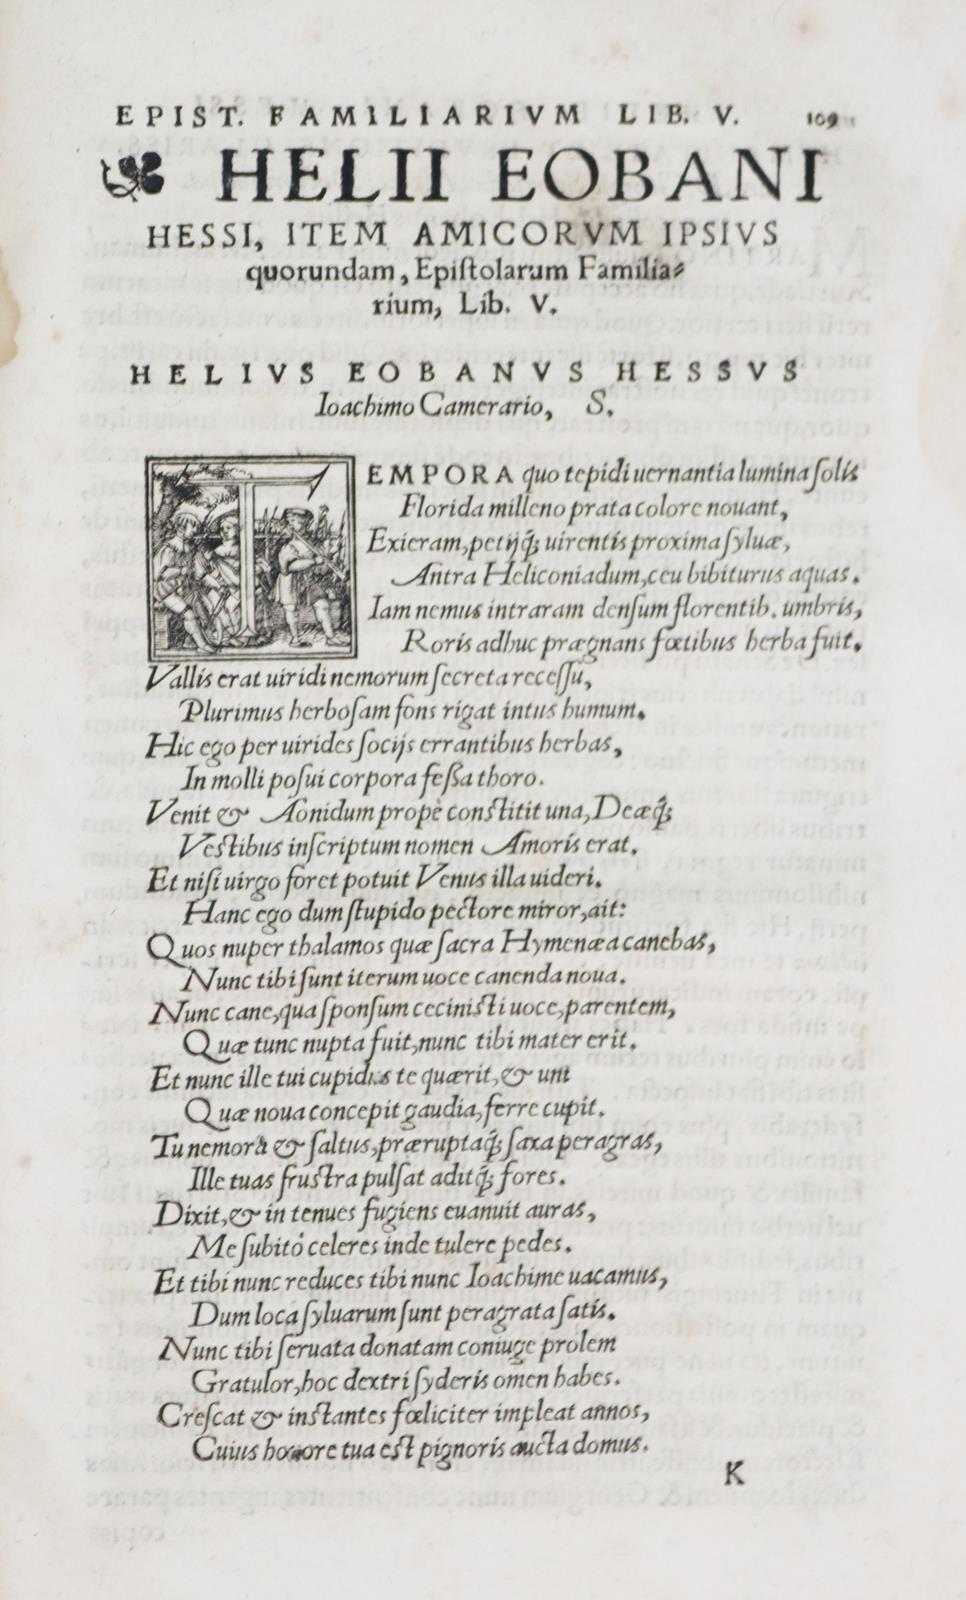 EPIST. FAMILIARIVM LIB. V. 109
HELII EOBANI
HESSI, ITEM AMICORVM IPSIVS
quorundam, Epiſtolarum Familia⸗
rium, Lib. V.
HELIVS EOBANVS HESSVS
Ioachimo Camerario, S.
TEMPORA quo tepidi uernantia lumina ſolis
Florida milleno prata colore nouant,
Exieram, petijq́; uirentis proxima ſyluæ,
Antra Heliconiadum, ceu bibiturus aquas.
Iam nemus intraram denſum florentib. umbris,
Roris adhuc prægnans fœtibus herba fuit.
Vallis erat uiridi nemorum ſecreta receſſu,
Plurimus herboſam fons rigat intus humum.
Hic ego per uirides ſocijs errantibus herbas,
In molli poſui corpora feßa thoro.
Venit & Aonidum propè conſtitit una, Deæq́;
Veſtibus inſcriptum nomen Amoris erat.
Et niſi uirgo foret potuit Venus illa uideri.
Hanc ego dum ſtupido pectore miror, ait:
Quos nuper thalamos quæ ſacra Hymenæa canebas,
Nunc tibi ſunt iterum uoce canenda noua.
Nunc cane, qua ſponſum ceciniſti uoce, parentem,
Quæ tunc nupta fuit, nunc tibi mater erit.
Et nunc ille tui cupidus te quærit, & unt
Quæ noua concepit gaudia, ferre cupit.
Tu nemora & ſaltus, præruptaq́; ſaxa peragras,
Ille tuas fruſtra pulſat aditq́; fores.
Dixit, & in tenues fugiens euanuit auras,
Me ſubitò celeres inde tulere pedes.
Et tibi nunc reduces tibi nunc Ioachime uacamus,
Dum loca ſyluarum ſunt peragrata ſatis.
Nunc tibi ſeruata donatam coniuge prolem
Gratulor, hoc dextri ſyderis omen habes.
Creſcat & inſtantes fœliciter impleat annos,
Cuius honore tua est pignoris aucta domus.
K